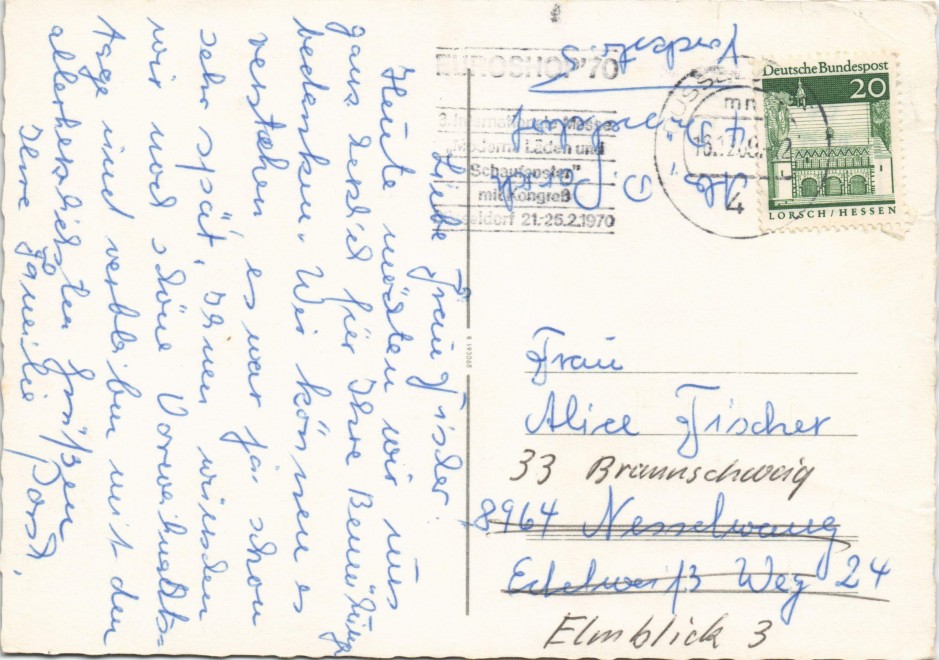 Liebe Frau Fischer.
Heute möchten wir uns
ganz herzlich für Ihre Bemühungen
bedanken. Wir können es
verstehen es war ja schon
sehr spät. Ihnen wünschen
wir noch schöne Vorweihnachts-
tage und verbleiben mit den
allerherzlichsten Grüßen
Ihre Familie Post.
EUROSHOP'70
3. Internationale Messe
„Moderne Läden und
Schaufenster"
mit Kongreß
Düsseldorf 21.-25.2.1970
4
Deutsche Bundespost
20
LORSCH/HESSEN
4 193065
Frau
Alice Fischer
33 Braunschweig
8964 Nesselwang
Edelweiß Weg 24
Elmblick 3